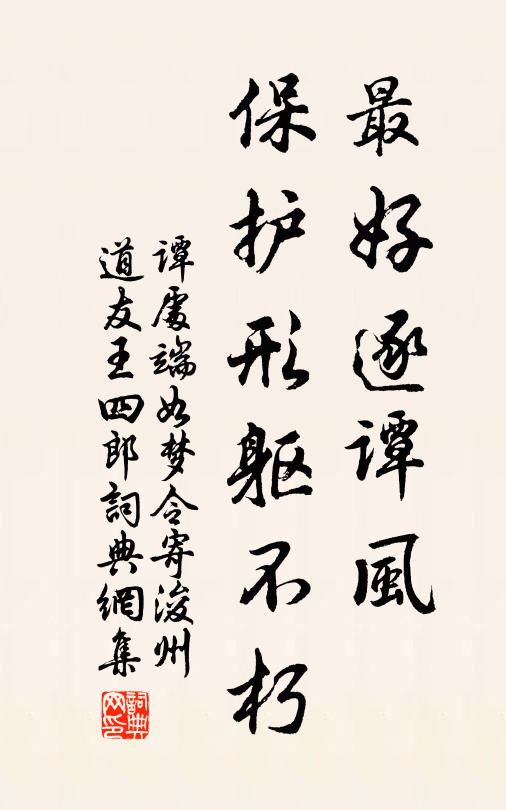 最好逐谭風
保护形躯不朽
谭處端如梦令寄浚州
道友王四郎詞典網集
詞典
网印